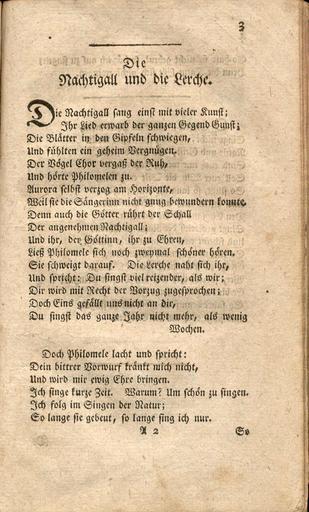 3
Die
Nachtigall und die Lerche.
Die Nachtigall sang einst mit vieler Kunst;
Ihr Lied erwarb der ganzen Gegend Gunst;
Die Blätter in den Gipfeln schwiegen,
Und fühlten ein geheim Vergnügen.
Der Vögel Chor vergaß der Ruh,
Und hörte Philomelen zu.
Aurora selbst verzog am Horizonte,
Weil sie die Sängerinn nicht gnug bewundern konnte.
Denn auch die Götter rührt der Schall
Der angenehmen Nachtigall;
Und ihr, der Göttinn, ihr zu Ehren,
Ließ Philomele sich noch zweymal schöner hören.
Sie schweigt darauf. Die Lerche naht sich ihr,
Und spricht: Du singst viel reizender, als wir;
Dir wird mit Recht der Vorzug zugesprochen;
Doch Eins gefällt uns nicht an dir,
Du singst das ganze Jahr nicht mehr, als wenig
Wochen.
Doch Philomele lacht und spricht:
Dein bittrer Vorwurf kränkt mich nicht,
Und wird mir ewig Ehre bringen.
Ich singe kurze Zeit. Warum? Um schön zu singen.
Ich folg im Singen der Natur;
So lange sie gebeut, so lange sing ich nur.
A 2 So